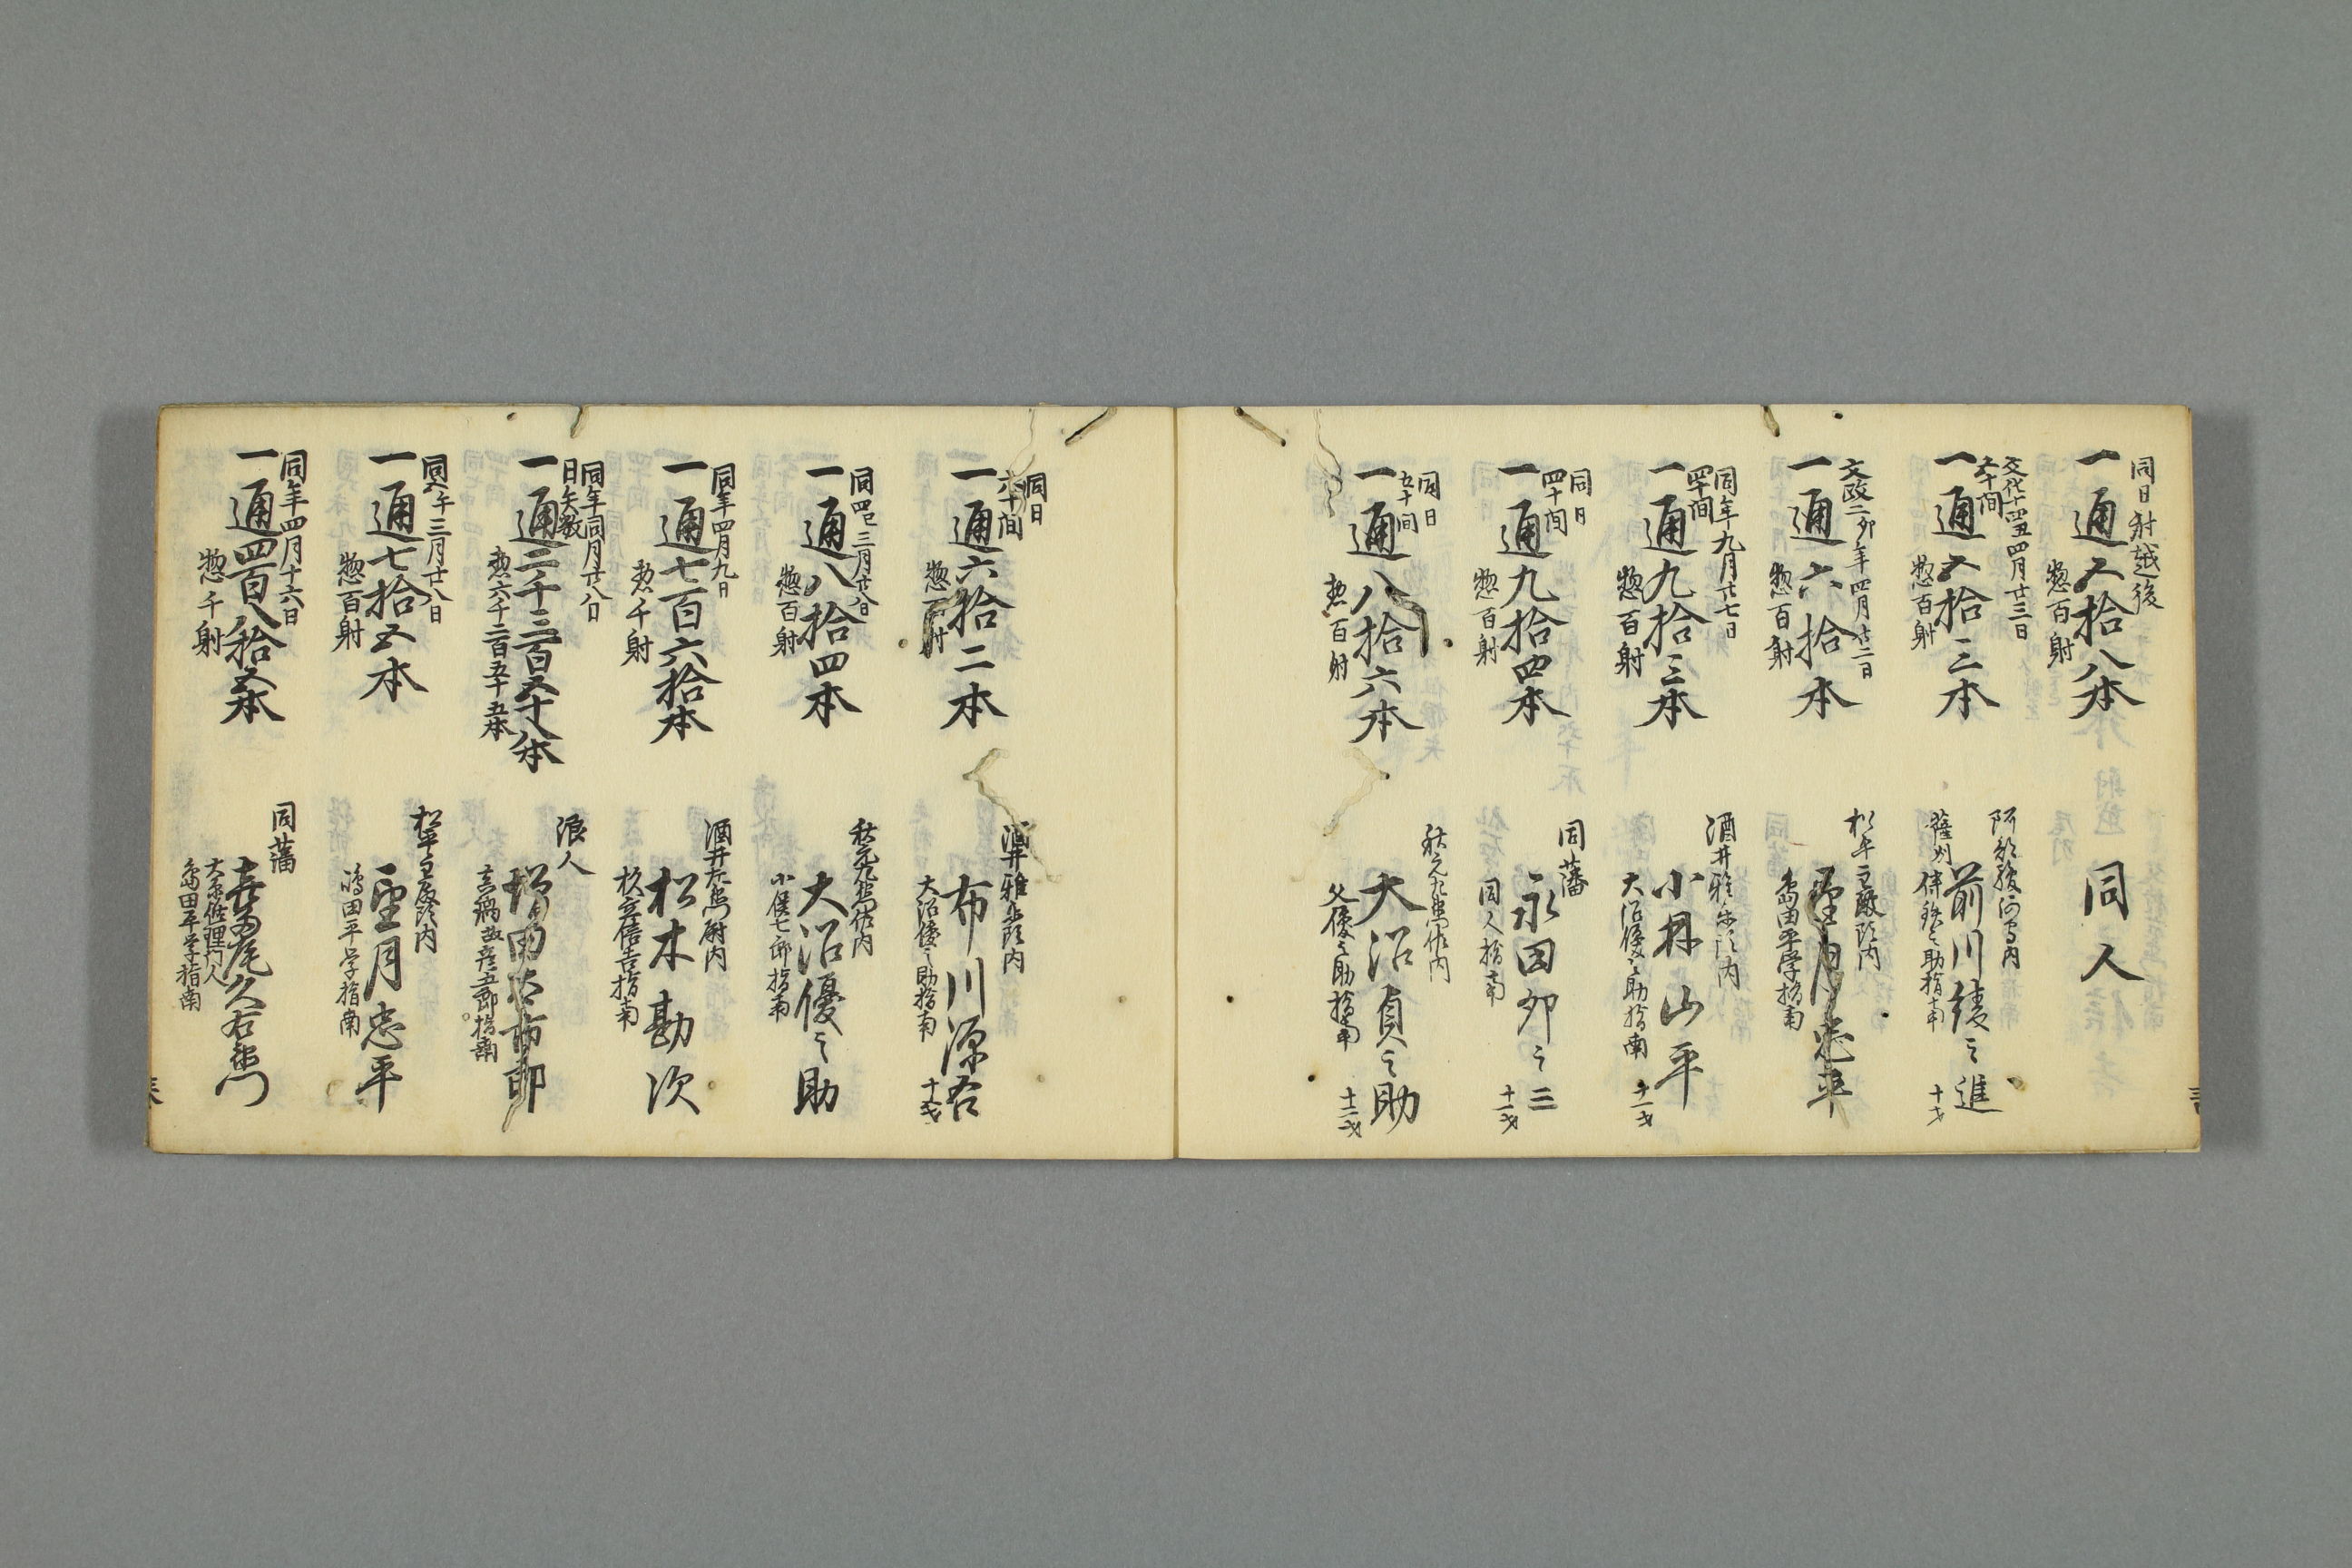 同日射越後
一通五拾八本
惣百射
同人
文化十四丑四月廿三日
五十間
一通五拾三本
惣百射
薩州
前川綾之進
十才
文政二卯年四月廿二日
一通六拾本
惣百射
松平主殿頭内
望月忠平
島田平学指南
同年九月廿七日
四十間
一通九拾三本
惣百射
酒井雅楽頭内
小林山平
大沼優之助指南
十一才
同日
四十間
一通九拾四本
惣百射
同藩
永田卯之三
同人指南
十一才
同日
五十間
一通八拾六本
惣百射
秋元左衛門佐内
大沼貞之助
父優之助指南
十二才
同日
六十間
一通六拾二本
惣百射
酒井雅楽頭内
布川源吾
大沼優之助指南
十才
同四巳三月廿八日
一通八拾四本
惣百射
秋元左衛門佐内
大沼優之助
小俣七郎指南
同年四月九日
一通七百六拾本
惣千射
酒井左衛門尉内
松木勘次
杉立信吉指南
同年同月廿八日
日矢数
一通二千三百五十八本
惣六千二百五十五本
浪人
同五午三月廿八日
一通七拾五本
惣百射
松平主殿頭内
望月忠平
嶋田平学指南
同年四月十六日
一通四百八拾五本
惣千射
同藩
喜多尾久右衛門
島田平学指南